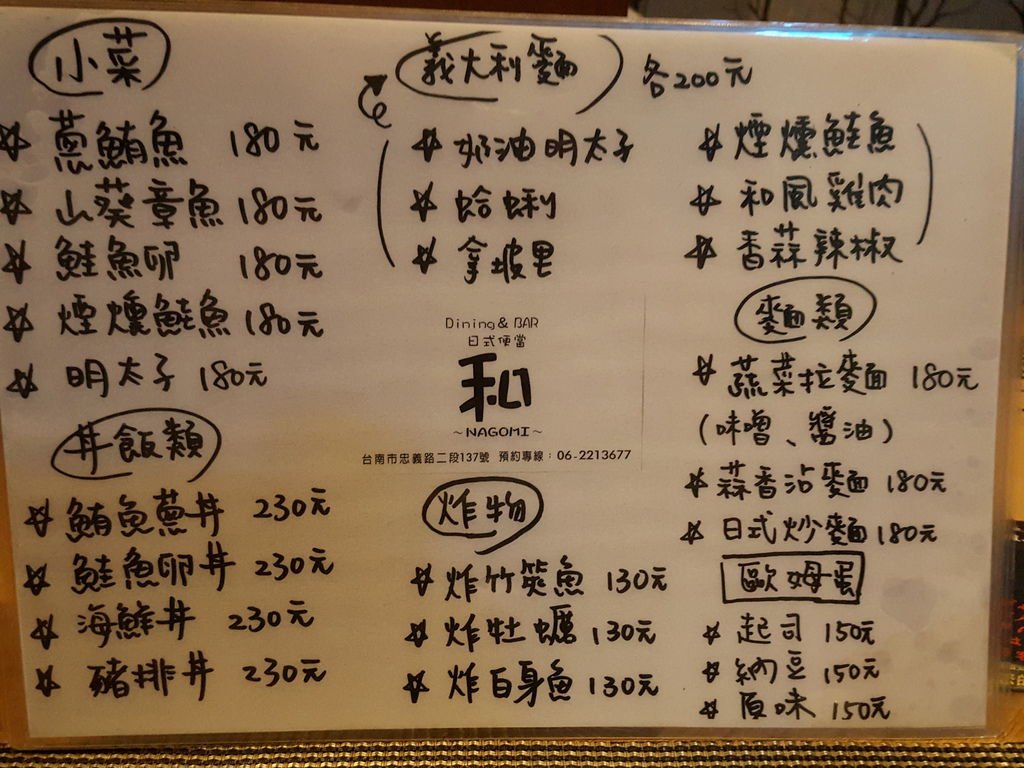 小菜
☆ 蔥鮪魚 180元
☆ 山葵章魚 180元
☆ 鮭魚卵 180元
☆ 煙燻鮭魚 180元
☆ 明太子 180元
丼飯類
☆ 鮪魚蔥丼 230元
☆ 鮭魚卵丼 230元
☆ 海鮮丼 230元
☆ 豬排丼 230元
義大利麵 各200元
☆ 奶油明太子
☆ 蛤蜊
☆ 拿坡里
☆ 煙燻鮭魚
☆ 和風雞肉
☆ 香蒜辣椒
Dining & BAR
日式便當
和
～NAGOMI～
台南市忠義路二段137號 預約專線：06-2213677
炸物
☆ 炸竹筴魚 130元
☆ 炸牡蠣 130元
☆ 炸白身魚 130元
麵類
☆ 蔬菜拉麵 180元
(味噌、醬油)
☆ 蒜香沾麵 180元
☆ 日式炒麵 180元
歐姆蛋
☆ 起司 150元
☆ 納豆 150元
☆ 原味 150元